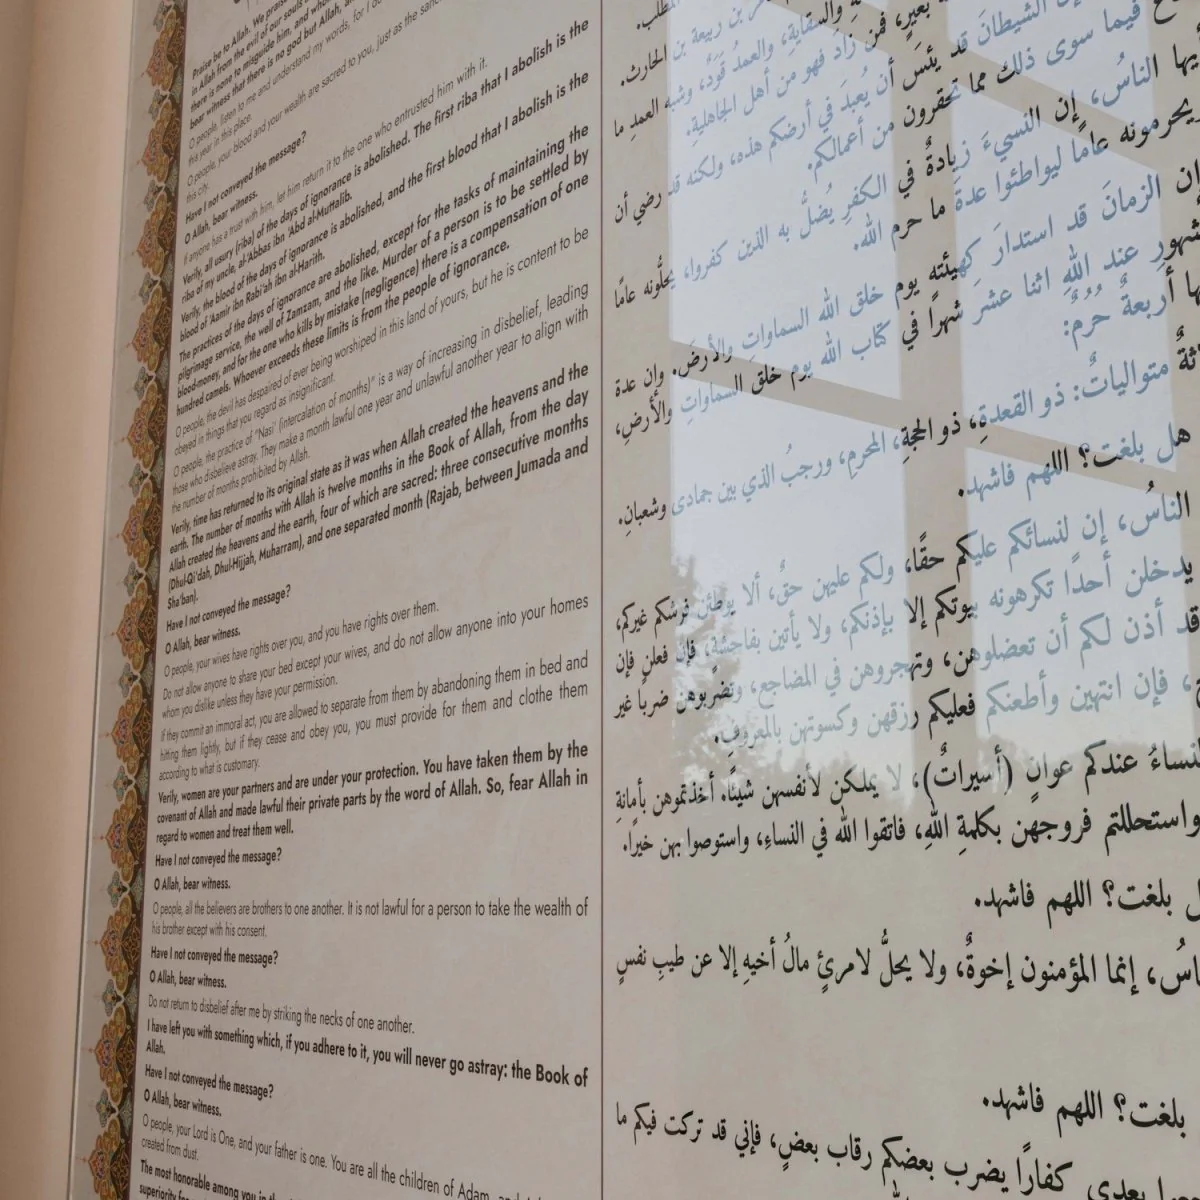 Praise be to Allah. We praise
in Allah from the evil of our souls
there is none to misguide him, and
bear witness that there is no god but Allah,
O people, listen to me and understand my words, for I do
this year in this place.
O people, your blood and your wealth are sacred to you, just as the
this city.
Have I not conveyed the message?
O Allah, bear witness.
If anyone has a trust with him, let him return it to the one who entrusted him with it.
Verily, all usury (riba) of the days of ignorance is abolished. The first riba that I abolish is the
riba of my uncle, al-'Abbas ibn 'Abd al-Muttalib.
Verily, the blood of the days of ignorance is abolished, and the first blood that I abolish is the
blood of 'Aamir ibn Rabi'ah ibn al-Harith.
The practices of the days of ignorance are abolished, except for the tasks of maintaining the
pilgrimage service, the well of Zamzam, and the like. Murder of a person is to be settled by
blood-money, and for the one who kills by mistake (negligence) there is a compensation of one
hundred camels. Whoever exceeds these limits is from the people of ignorance.
O people, the devil has despaired of ever being worshiped in this land of yours, but he is content to be
obeyed in things that you regard as insignificant.
O people, the practice of "Nasi' (intercalation of months)" is a way of increasing in disbelief, leading
those who disbelieve astray. They make a month lawful one year and unlawful another year to align with
the number of months prohibited by Allah.
Verily, time has returned to its original state as it was when Allah created the heavens and the
earth. The number of months with Allah is twelve months in the Book of Allah, from the day
Allah created the heavens and the earth, four of which are sacred: three consecutive months
(Dhul-Qi'dah, Dhul-Hijjah, Muharram), and one separated month (Rajab, between Jumada and
Sha'ban).
Have I not conveyed the message?
O Allah, bear witness.
O people, your wives have rights over you, and you have rights over them.
Do not allow anyone to share your bed except your wives, and do not allow anyone into your homes
whom you dislike unless they have your permission.
If they commit an immoral act, you are allowed to separate from them by abandoning them in bed and
hitting them lightly, but if they cease and obey you, you must provide for them and clothe them
according to what is customary.
Verily, women are your partners and are under your protection. You have taken them by the
covenant of Allah and made lawful their private parts by the word of Allah. So, fear Allah in
regard to women and treat them well.
Have I not conveyed the message?
O Allah, bear witness.
O people, all the believers are brothers to one another. It is not lawful for a person to take the wealth of
his brother except with his consent.
Have I not conveyed the message?
O Allah, bear witness.
Do not return to disbelief after me by striking the necks of one another.
I have left you with something which, if you adhere to it, you will never go astray: the Book of
Allah.
Have I not conveyed the message?
O Allah, bear witness.
O people, your Lord is One, and your father is one. You are all the children of Adam,
created from dust.
The most honorable among you in the
superiority
المطلب.
بن ربيعة بن الحارث.
والسقايةِ، والعمدُ قَوَدٌ، وشبه العمدِ ما
بعيرٍ، فمن زاد فهو من أهل الجاهليةِ.
الشيطانَ قد يئسَ أن يُعبدَ في أرضكم هذه، ولكنه قد رضي أن
فيما سوى ذلك مما تحقرون من أعمالكم.
أيها الناسُ، إن النسيءَ زيادةٌ في الكفرِ يُضلُّ به الذين كفروا، يحلُّونه عامًا
ويحرمونه عامًا ليواطئوا عدةَ ما حرم الله.
إن الزمانَ قد استدارَ كهيئته يوم خلق الله السماواتِ والأرضَ. وإن عدة
الشهورِ عند اللهِ اثنا عشرَ شهراً في كتاب الله يوم خلق السماواتِ والأرضِ،
أربعةٌ حُرُمٌ:
متوالياتٌ: ذو القعدةِ، ذو الحجةِ، المحرمِ، ورجبُ الذي بين جمادى وشعبانِ.
هل بلغت؟ اللهم فاشهد.
الناسُ، إن لنسائكم عليكم حقًا، ولكم عليهن حقٌ، ألا يوطئن فرشكم غيركم،
يدخلن أحدًا تكرهونه بيوتكم إلا بإذنكم، ولا يأتين بفاحشةٍ، فإن فعلن فإن
قد أذن لكم أن تعضلوهن، وتهجروهن في المضاجع، وتضربوهن ضربا غير
، فإن انتهين وأطعنكم فعليكم رزقهن وكسوتهن بالمعروفِ.
النساءُ عندكم عوانٍ (أسيراتٌ)، لا يملكن لأنفسهن شيئًا. أخذتموهن بأمانةِ
واستحللتم فروجهن بكلمةِ اللهِ، فاتقوا الله في النساءِ، واستوصوا بهن خيرًا.
بلغت؟ اللهم فاشهد.
، إنما المؤمنون إخوةٌ، ولا يحلُّ لامرئٍ مالُ أخيهِ إلا عن طيبِ نفسٍ
بلغت؟ اللهم فاشهد.
كفارًا يضرب بعضكم رقاب بعضٍ، فإني قد تركت فيكم ما